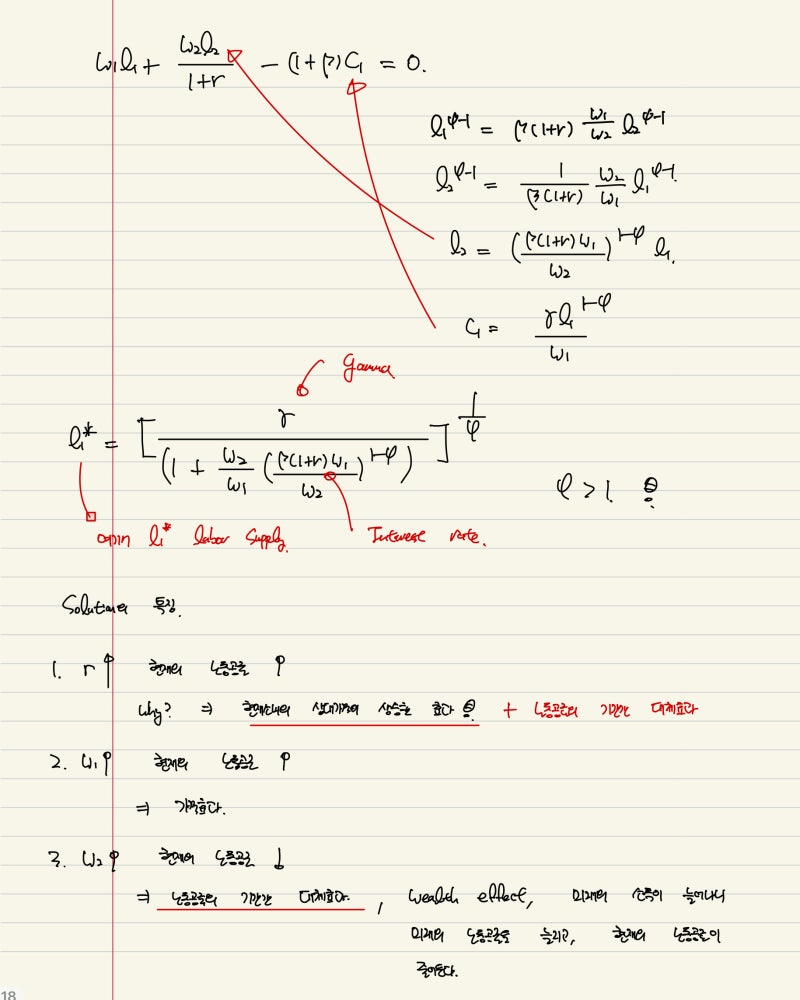 w₁l₁ + w₂l₂/(1+r) − (1+β)C₁ = 0.
l₁^(φ-1) = β(1+r) w₁/w₂ l₂^(φ-1)
l₂^(φ-1) = 1/(β(1+r)) w₂/w₁ l₁^(φ-1).
l₂ = (β(1+r)w₁/w₂)^(1-φ) l₁.
C₁ = γl₁^(1-φ)/w₁
Gamma
l₁* = [γ/(1 + w₂/w₁ (β(1+r)w₁/w₂)^(1-φ))]^(1/φ)
φ > 1.
l₁* labor supply.
Interest rate.
Solution의 특징.
1. r↑ 현재의 노동공급 ↑
Why? ⇒ 현재소비의 상대가격의 상승효과 + 노동공급의 기간간 대체효과
2. w₁↑ 현재의 노동공급 ↑
⇒ 가격효과.
3. w₂↑ 현재의 노동공급 ↓
⇒ 노동공급의 기간간 대체효과. , Wealth effect, 미래의 소득이 늘어나니
미래의 노동공급을 늘리고, 현재의 노동공급이
줄어든다.
18